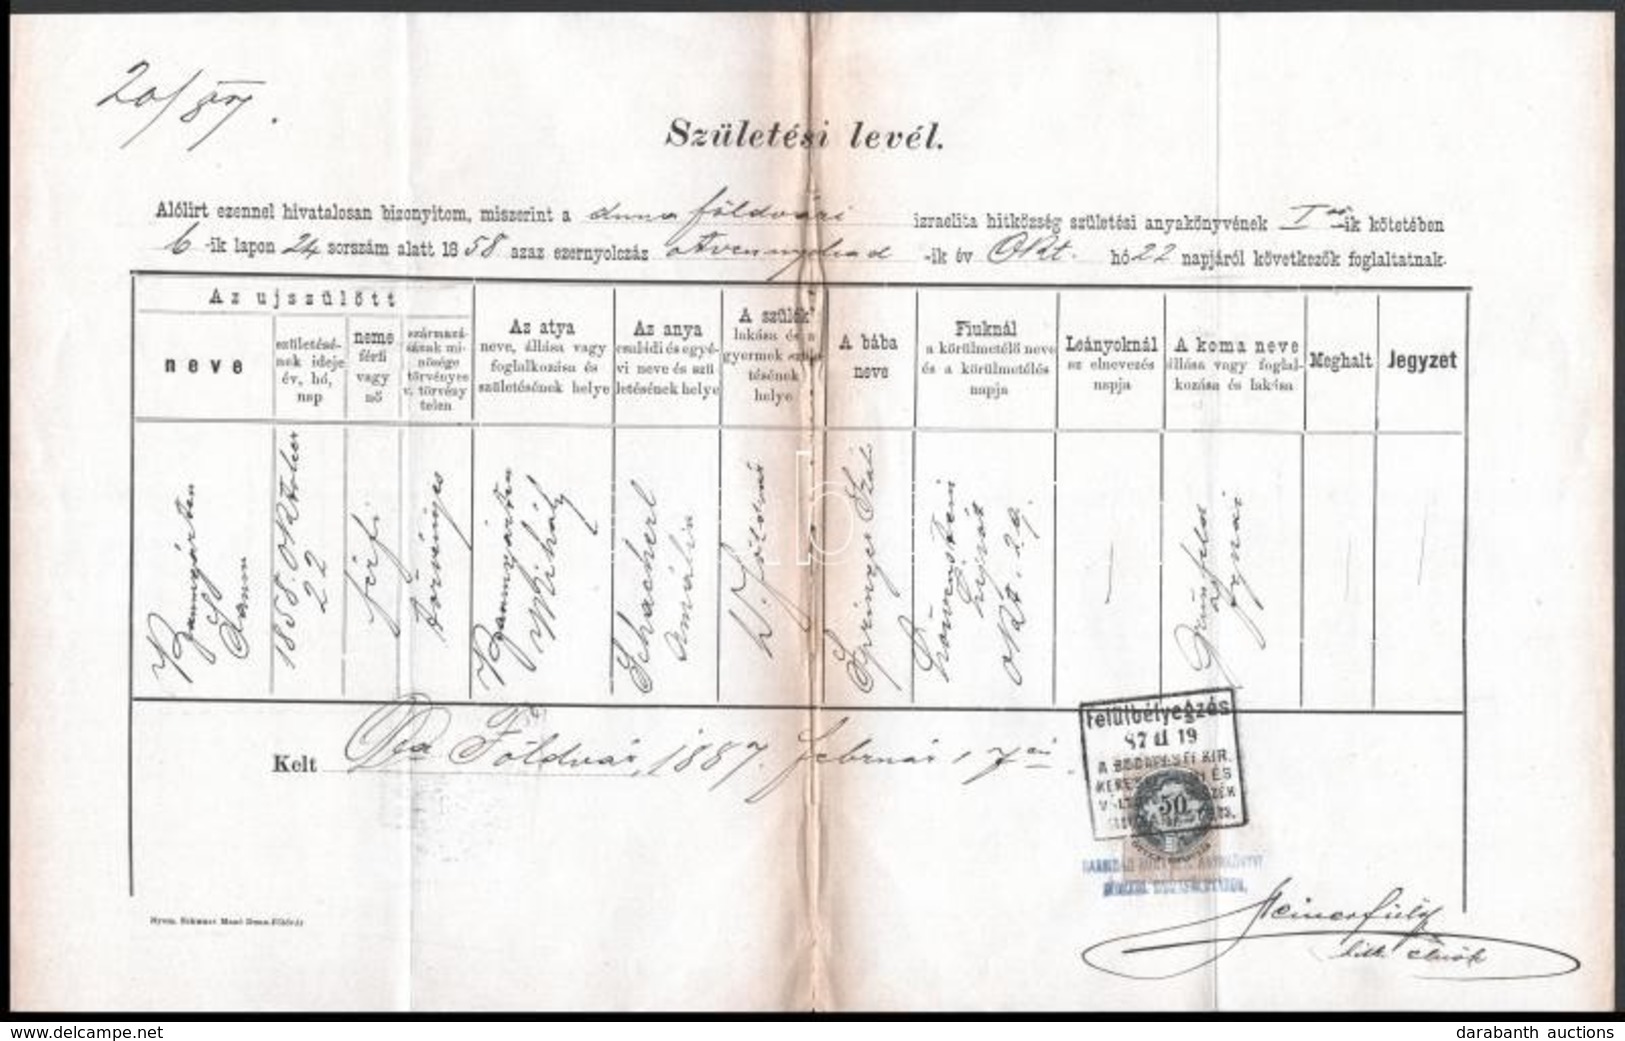 20/87.
Születési levél.
Alólirt ezennel hivatalosan bizonyitom, miszerint a duna földvári izraelita hitközség születési anyakönyvének I ső -ik kötetében
6 -ik lapon 24 sorszám alatt 1858 azaz ezernyolczáz ötvennyolcad -ik év Okt. hó 22 napjáról következők foglaltatnak.
Az ujszülött
neve
születésé-
nek ideje
év, hó,
nap
neme
férfi
vagy
nő
származá-
sának mi-
nősége
törvényes
v. törvény
telen
Az atya
neve, állása vagy
foglalkozása és
születésének helye
Az anya
családi és egyé-
vi neve és szü
letésének helye
A szülők
lakása és a
gyermek szüle
tésének
helye
A bába
neve
Fiuknál
a körülmetélő neve
és a körülmetélés
napja
Leányoknál
az elnevezés
napja
A koma neve
állása vagy foglal-
kozása és lakása
Meghalt
Jegyzet
Baumgarten
Sam
1858. Oktober
22
férfi
törvényes
Baumgarten
Mihály
Schacherl
Amália
D. Földvár
Springer Szali
Löwenstein
Ignát
Okt. 29.
Grünfeld
Ignác
Kelt Duna Földvár, 1887. február 17 én
Felülbélyegzés
87 II 19
A BUDAPESTI KIR.
50
Nyom. Schuszt Manó Duna-Földvár
hitk. elnök
darabanth
www.delcampe.net
darabanth auctions